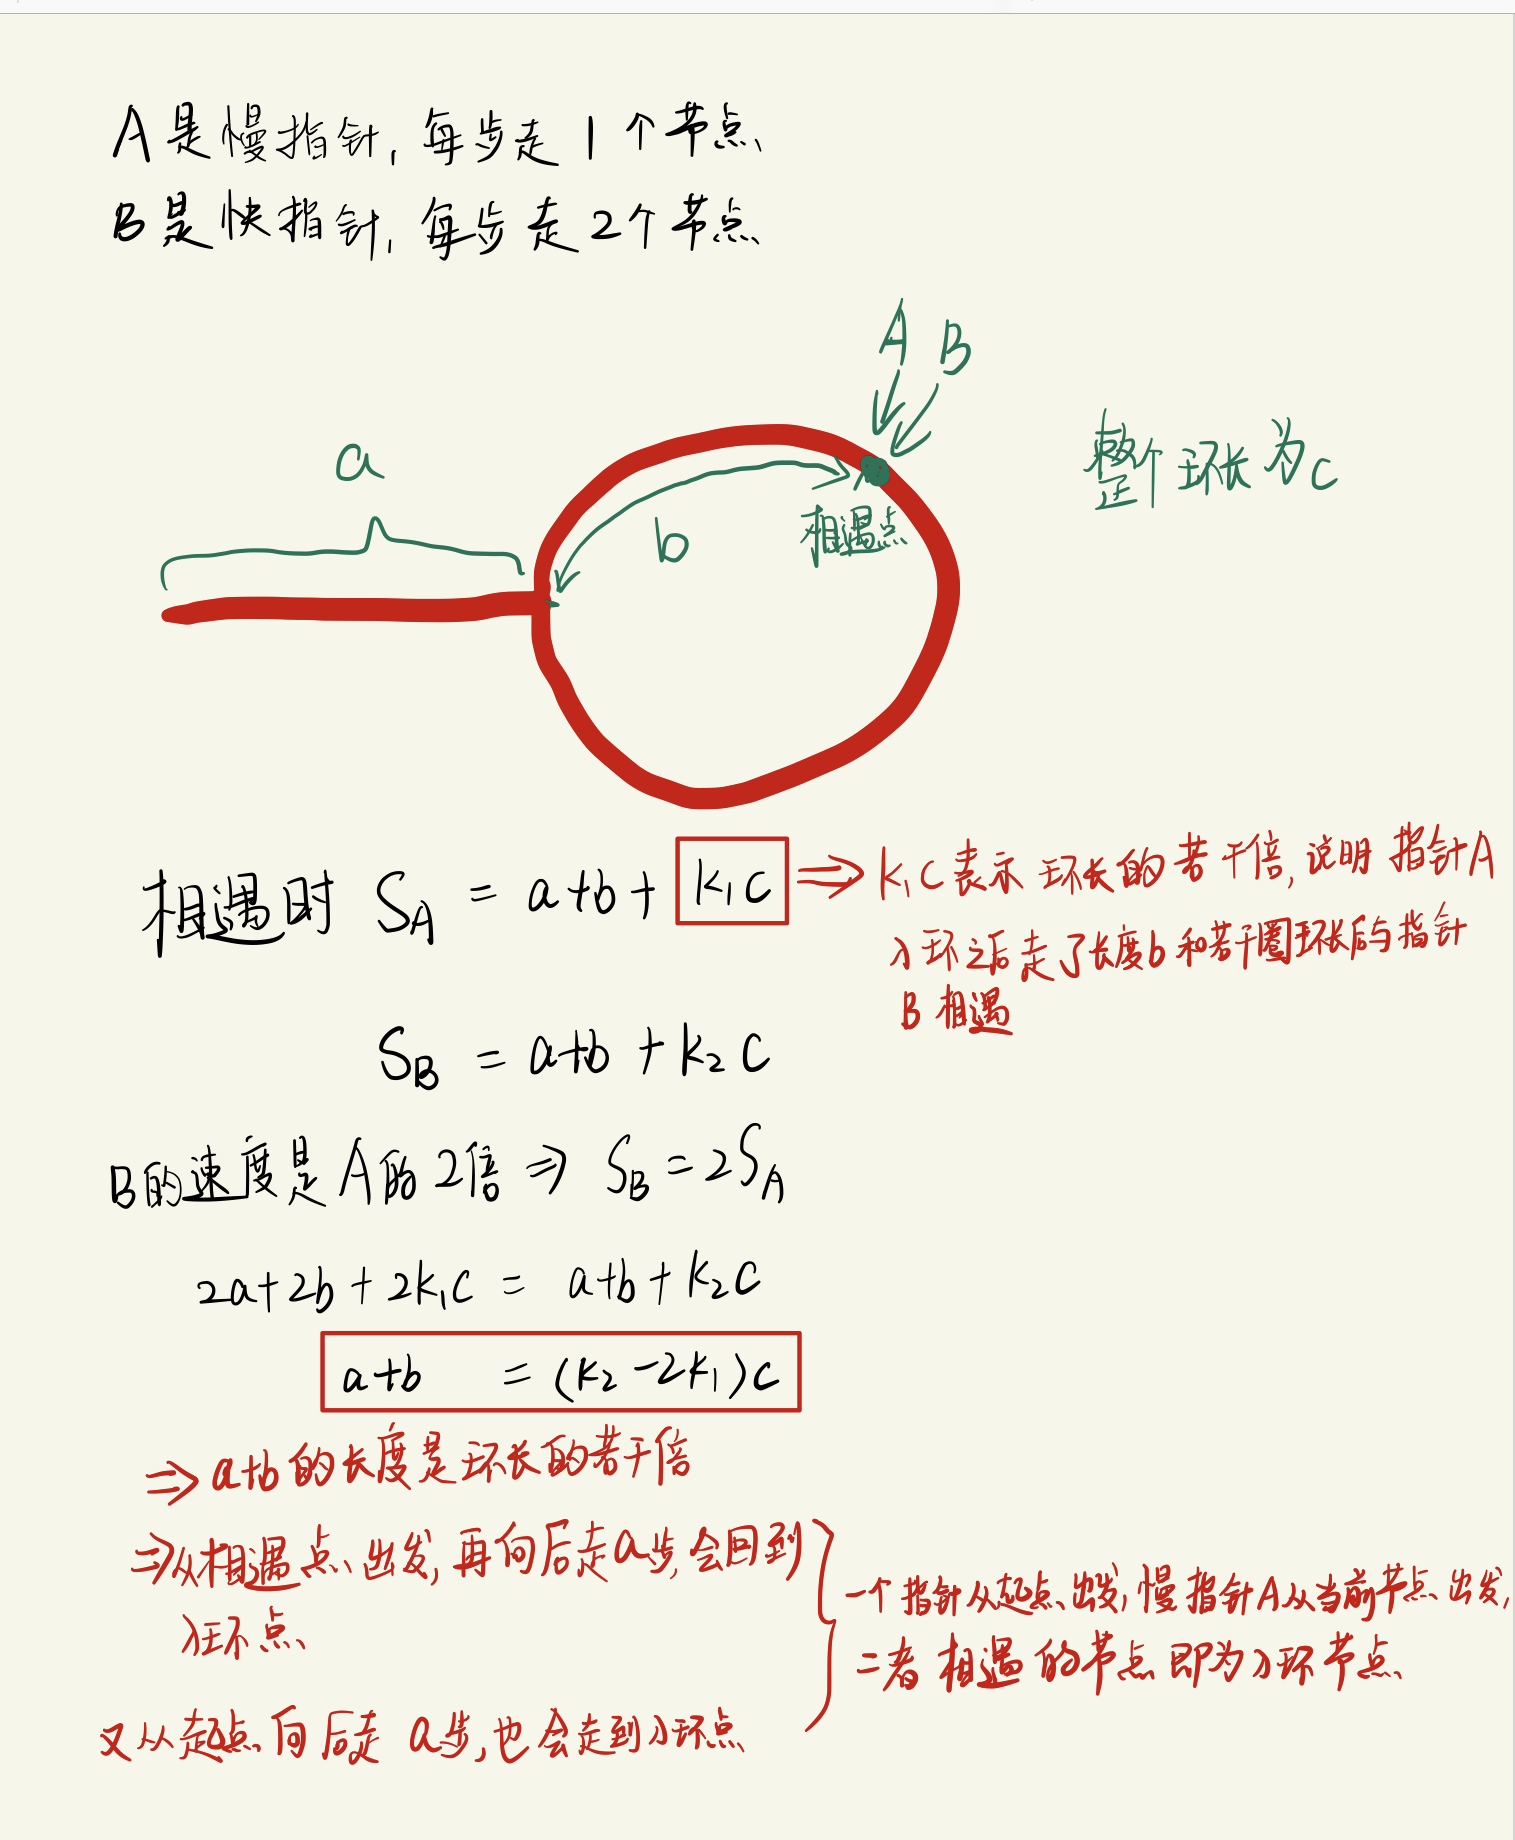 A是慢指针,每步走1个节点
B是快指针,每步走2个节点
A B
a
整个环长为c
b
相遇点
相遇时 S_A = a+b+ k₁c ⇒ k₁c表示环长的若干倍,说明指针A
入环之后走了长度b和若干圈环长后与指针
B相遇
S_B = a+b+k₂c
B的速度是A的2倍 ⇒ S_B = 2S_A
2a+2b+2k₁c = a+b+k₂c
a+b = (k₂-2k₁)c
⇒ a+b的长度是环长的若干倍
⇒ 从相遇点出发,再向后走a步,会回到
入环点
又从起点向后走a步,也会走到入环点
一个指针从起点出发,慢指针A从当前节点出发,
二者相遇的节点即为入环节点